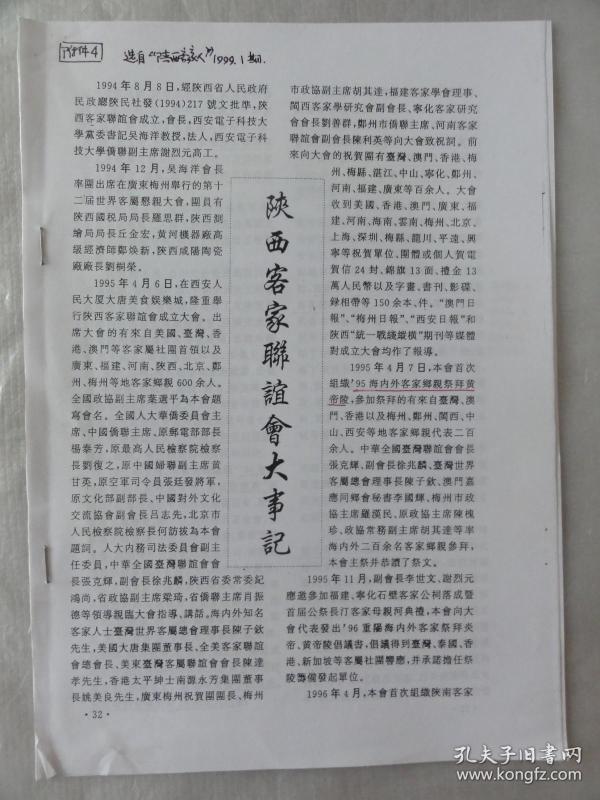 附件4
选自“陕西客家人”1999.1期.
1994年8月8日，經陝西省人民政府
民政廳陝民社發(1994)217號文批準，陝
西客家聯誼會成立，會長，西安電子科技大
學黨委書記吳海洋教授，法人，西安電子科
技大學僑聯副主席謝烈元高工。
1994年12月，吳海洋會長
率團出席在廣東梅州舉行的第十
二届世界客屬懇親大會，團員有
陝西國税局局長羅思群，陝西測
繪局局長丘金宏，黄河機器廠高
級經濟師鄭焕新，陝西咸陽陶瓷
廠廠長劉桐榮。
1995年4月6日，在西安人
民大厦大唐美食娱樂城，隆重舉
行陝西客家聯誼會成立大會。出
席大會的有來自美國、臺灣、香
港、澳門等客家屬社團首領以及
廣東、福建、河南、陝西、北京、鄭
州、梅州等地客家鄉親600余人。
全國政協副主席葉選平為本會題
寫會名。全國人大華僑委員會主
席、中國僑聯主席、原郵電部部長
楊泰芳，原最高人民檢察院檢察
長劉復之，原中國婦聯副主席黄
甘英，原空軍司令員張廷發將軍，
原文化部副部長、中國對外文化
交流協會副會長吕志先，北京市
人民檢察院檢察長何訪拔為本會
題詞。人大内務司法委員會副主
任委員，中華全國臺灣聯誼會會
長張克輝，副會長徐兆麟，陝西省委常委紀
鴻尚，省政協副主席梁琦，省僑聯主席肖振
德等領導親臨大會指導、講話。海内外知名
客家人士臺灣世界客屬總會理事長陳子欽
先生，美國大唐集團董事長、全美客家聯誼
會總會長、美東臺灣客屬聯誼會會長陳達
孝先生，香港太平紳士南源永芳集團董事
長姚美良先生，廣東梅州祝賀團團長、梅州
·32·
陝西客家聯誼會大事記
市政協副主席胡其達，福建客家學會理事、
閩西客家學研究會副會長、寧化客家研究
會會長劉善群，鄭州市僑聯主席、河南客家
聯誼會副會長陳利英等向大會致祝詞。前
來向大會的祝賀團有臺灣、澳門、香港、梅
州、梅縣、湛江、中山、寧化、鄭州、
河南、福建、廣東等百余人。大會
收到美國、香港、澳門、廣東、福
建、河南、海南、雲南、梅州、北京、
上海、深圳、梅縣、龍川、平遠、興
寧等祝賀單位、團體或個人賀電
賀信24封、錦旗13面、禮金13
萬人民幣以及字畫、書刊、影碟、
録相帶等150余本、件。“澳門日
報”、“梅州日報”、“西安日報”和
陝西“統一戰綫縱横”期刊等媒體
對成立大會均作了報導。
1995年4月7日，本會首次
組織’95海内外客家鄉親祭拜黄
帝陵，參加祭拜的有來自臺灣、澳
門、香港以及梅州、鄭州、閩西、中
山、西安等地客家鄉親代表二百
余人。中華全國臺灣聯誼會會長
張克輝、副會長徐兆麟、臺灣世界
客屬總會理事長陳子欽、澳門嘉
應同鄉會秘書李國輝、梅州市政
協主席羅漢民、原政協主席陳槐
珍、政協常務副主席胡其達等率
海内外二百余名客家鄉親參拜，
本會主祭并恭讀了祭文。
1995年11月，副會長李世文、謝烈元
應邀參加福建、寧化石壁客家公祠落成暨
首届公祭長汀客家母親河典禮，本會向大
會代表發出’96重陽海内外客家祭拜炎
帝、黄帝陵倡議書，倡議得到臺灣、泰國、香
港、新加坡等客屬社團響應，并承諾擔任祭
陵籌備發起單位。
1996年4月，本會首次組織陝南客家
孔夫子旧书网
www.kongfz.com